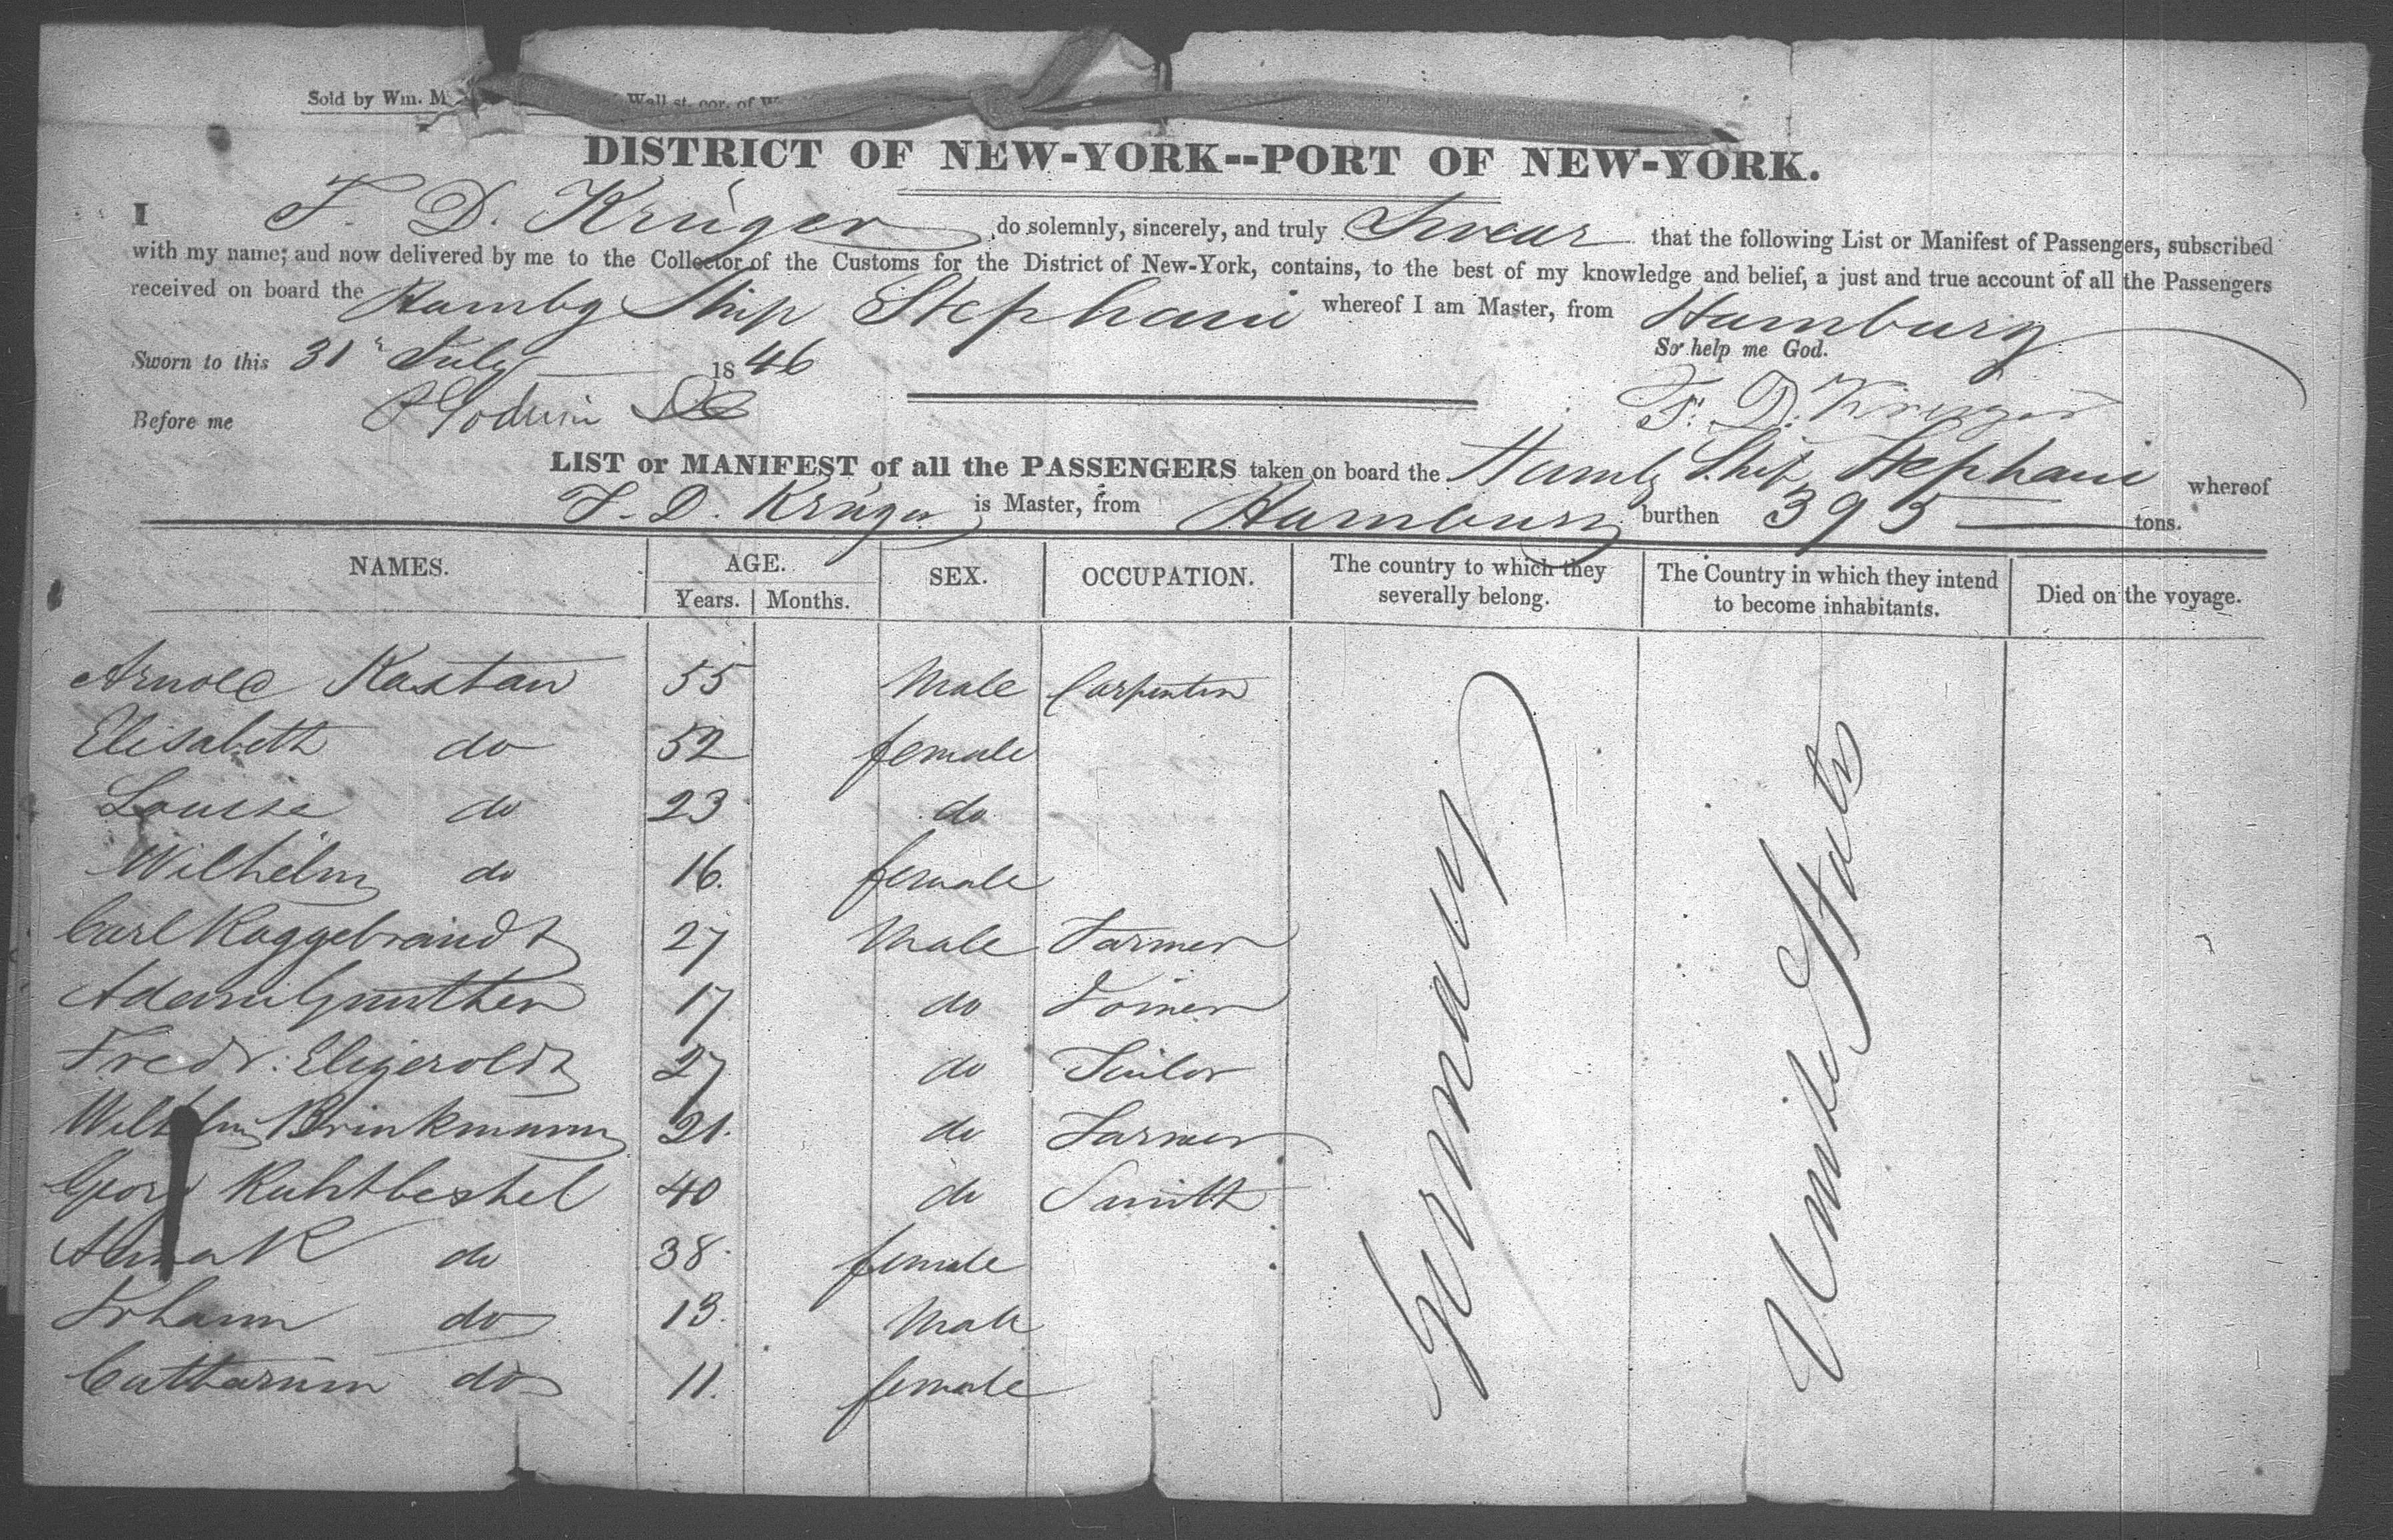 Sold by Wm. M Wall st. cor. of W
DISTRICT OF NEW-YORK--PORT OF NEW-YORK.
I F. D. Krüger do solemnly, sincerely, and truly Swear that the following List or Manifest of Passengers, subscribed
with my name; and now delivered by me to the Collector of the Customs for the District of New-York, contains, to the best of my knowledge and belief, a just and true account of all the Passengers
received on board the Hambg Ship Stephani whereof I am Master, from Hamburg
So help me God.
Sworn to this 31 July 1846
F. D. Krüger
Before me Godwin
LIST or MANIFEST of all the PASSENGERS taken on board the Hambg Ship Stephani whereof
F. D. Krüger is Master, from Hamburg burthen 395 tons.
NAMES. AGE. Years. Months. SEX. OCCUPATION. The country to which they severally belong. The Country in which they intend to become inhabitants. Died on the voyage.
Arnold Kastau 55 Male Carpenter
Elisabeth do 52 female
Louise do 23 do
Wilhelm do 16. female
Carl Roggebrandt 27 Male Farmer
Adam Gunther 17 do Joiner
Fredr. 27 do Tailor
Wilhelm Brinkmann 21. do Farmer
Georg 40 do Smith
Anna K do 38. female
Johann do 13. Male
Catharina do 11. female
Germany
United States